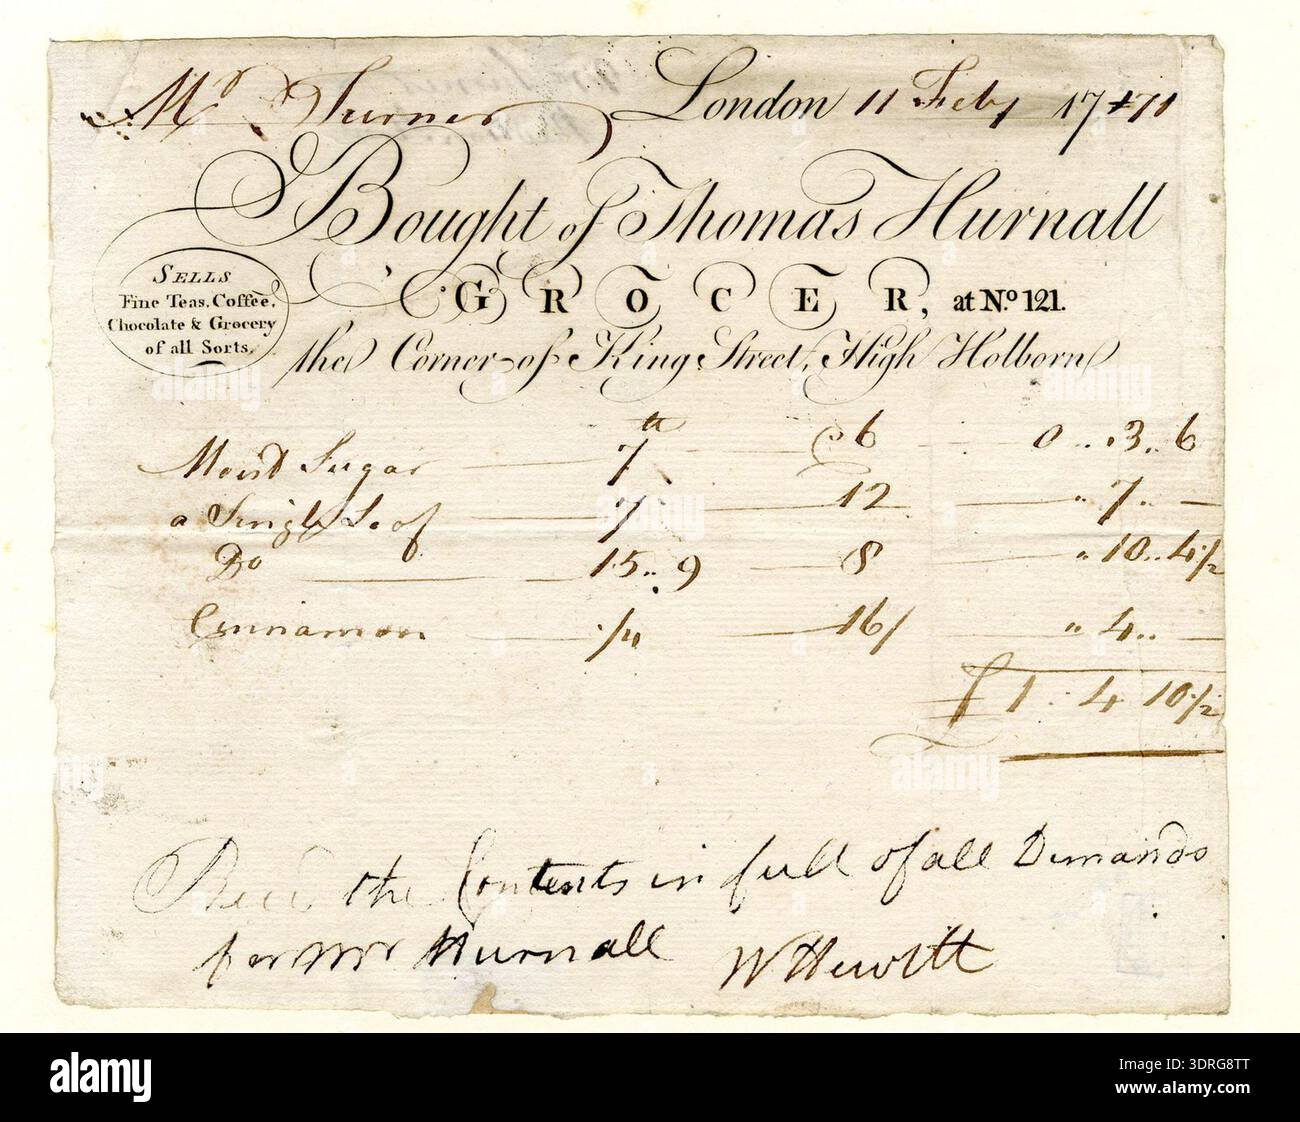 Mr Turner London 11 Feby 1771
Bought of Thomas Hurnall
SELLS
Fine Teas, Coffee,
Chocolate & Grocery
of all Sorts.
GROCER, at No. 121.
the Corner of King Street, High Holborn
Moist Sugar 7 lb @ 6 0 .. 3 .. 6
a Single Loaf 7 12 " 7 .. —
Do 15 .. 9 8 " 10 .. 4½
Cinnamon ¼ 16/ " 4 .. —
£1 . 4 10½
Recd the Contents in full of all Demands
for Mr Hurnall W Hewitt
alamy
Image ID: 3DRG8TT
www.alamy.com